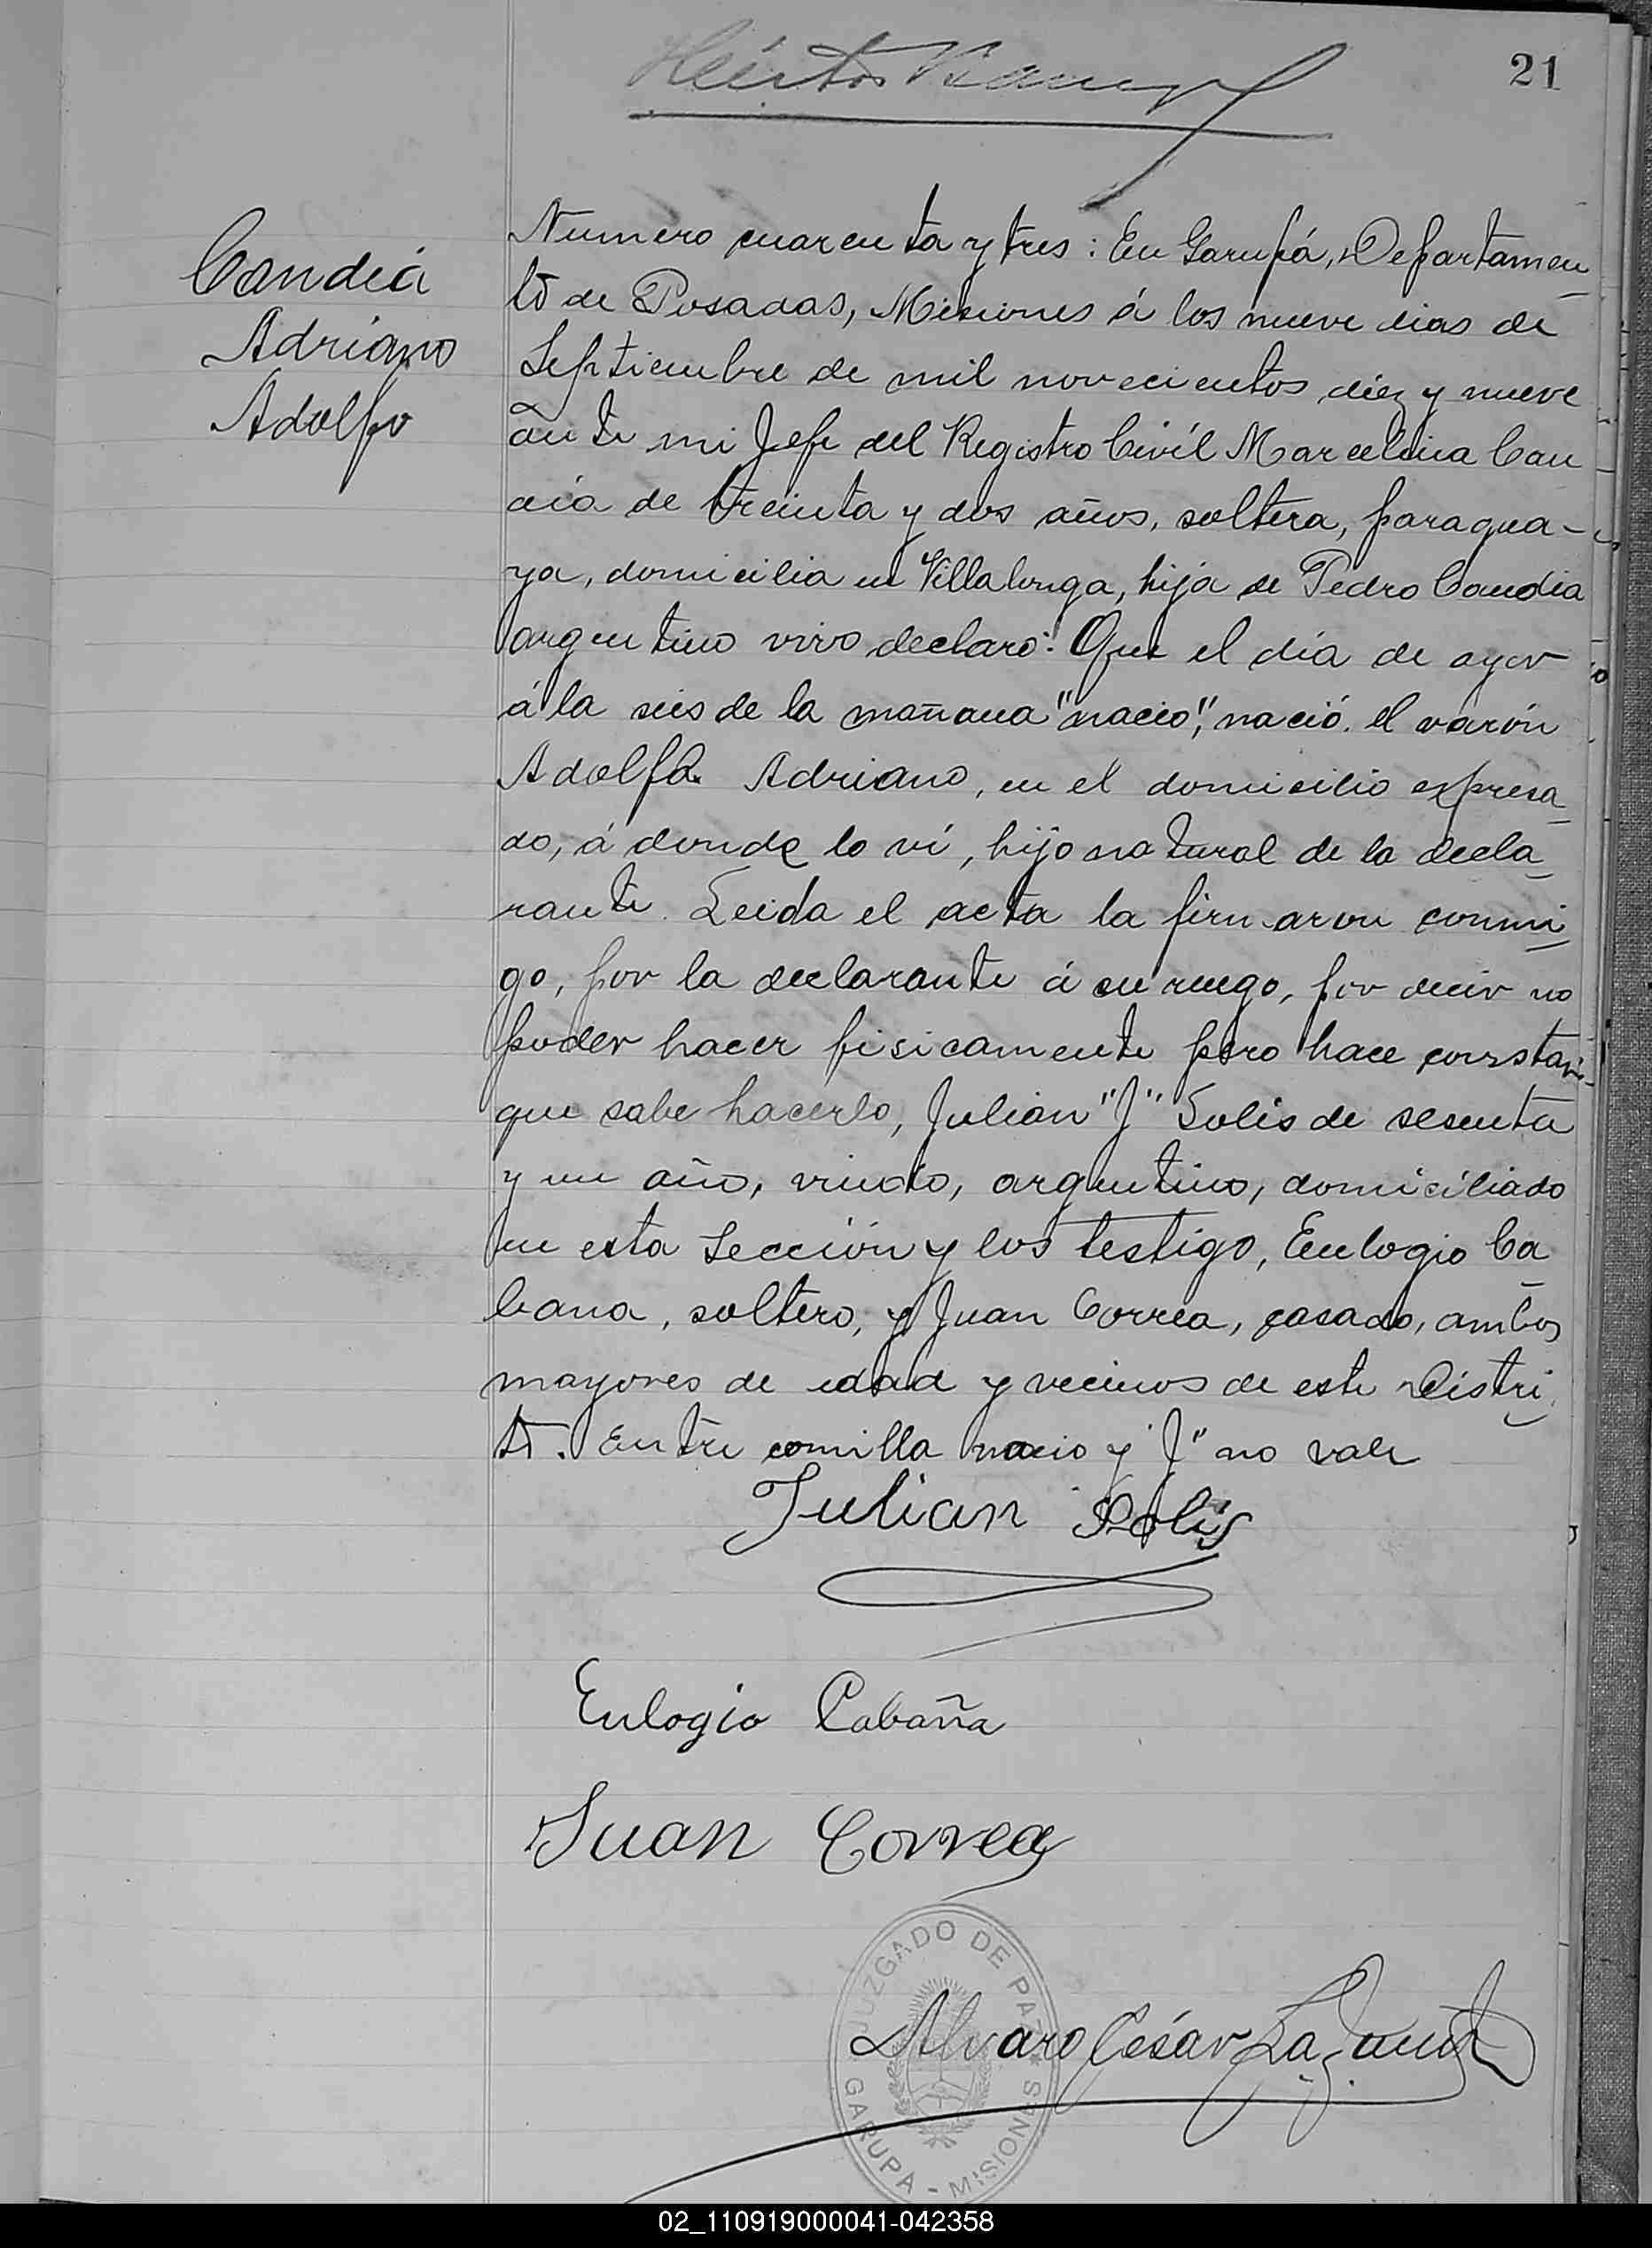 21
Candiá
Adriano
Adolfo
Numero cuarenta y tres : En Garupá, Departamen
to de Posadas, Misiones á los nueve dias de
Septiembre de mil novecientos diez y nueve
ante mi Jefe del Registro Civíl Marcelina Can
dia de treinta y dos años, soltera, paragua-
ya, domicilia en Villalonga, hija de Pedro Candia
argentino vivo declaro: Que el día de ayer
á la seis de la mañana "nacio", nació el varón
Adolfo Adriano, en el domicilio expresa
do, á donde lo ví, hijo natural de la decla
rante. Leida el acta la firmaron conmi
go, por la declarante á su ruego, por decir no
poder hacer fisicamente pero hace constar
que sabe hacerlo, Julian "J" Solis de sesenta
y un año, viudo, argentino, domiciliado
en esta Sección y los testigo, Eulogio Ca
bana, soltero, y Juan Correa, casado, ambos
mayores de edad y vecinos de este Distri
to. Entre comilla nacio y "J" no vale
Julian Solis
Eulogio Cabaña
Juan Correa
JUZGADO DE PAZ
GARUPA - MISIONES
Alvaro César
02_110919000041-042358